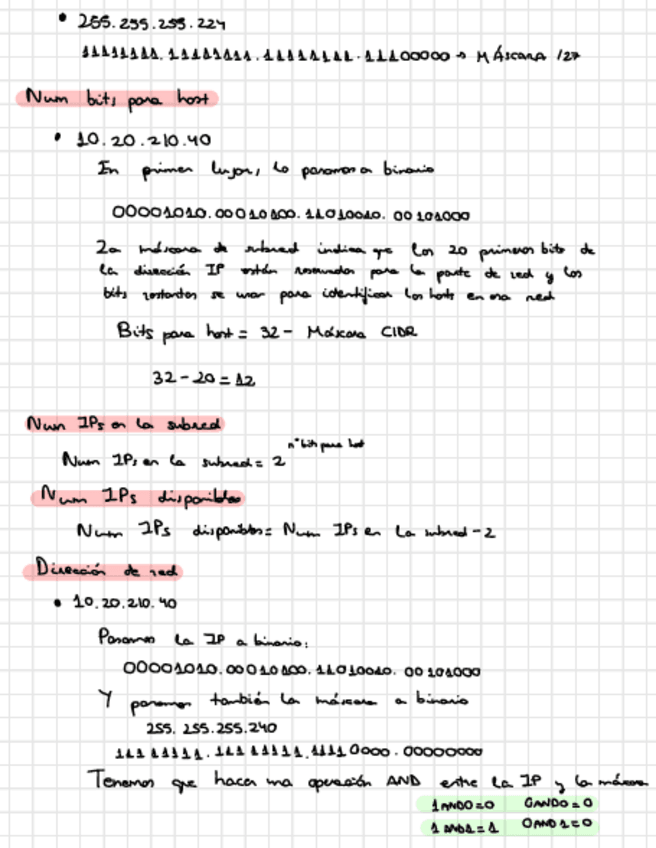 • 255.255.255.224
11111111.11111111.11111111.11100000 → MÁscara /27
Num bits para host
• 10.20.210.40
En primer lugar, lo pasamos a binario
00001010.00010100.11010010.00101000
La máscara de subred indica que los 20 primeros bits de
la dirección IP están reservados para la parte de red y los
bits restantes se usan para identificar los hosts en esa red
Bits para host = 32 - Máscara CIDR
32 - 20 = 12
Num IPs en la subred
nº bits para host
Num IPs en la subred = 2
Num IPs disponibles
Num IPs disponibles = Num IPs en la subred - 2
Dirección de red
• 10.20.210.40
Pasamos la IP a binario:
00001010.00010100.11010010.00101000
Y pasamos también la máscara a binario
255.255.255.240
11111111.11111111.11110000.00000000
Tenemos que hacer una operación AND entre la IP y la máscara
1 AND 0 = 0 0 AND 0 = 0
1 AND 1 = 1 0 AND 1 = 0